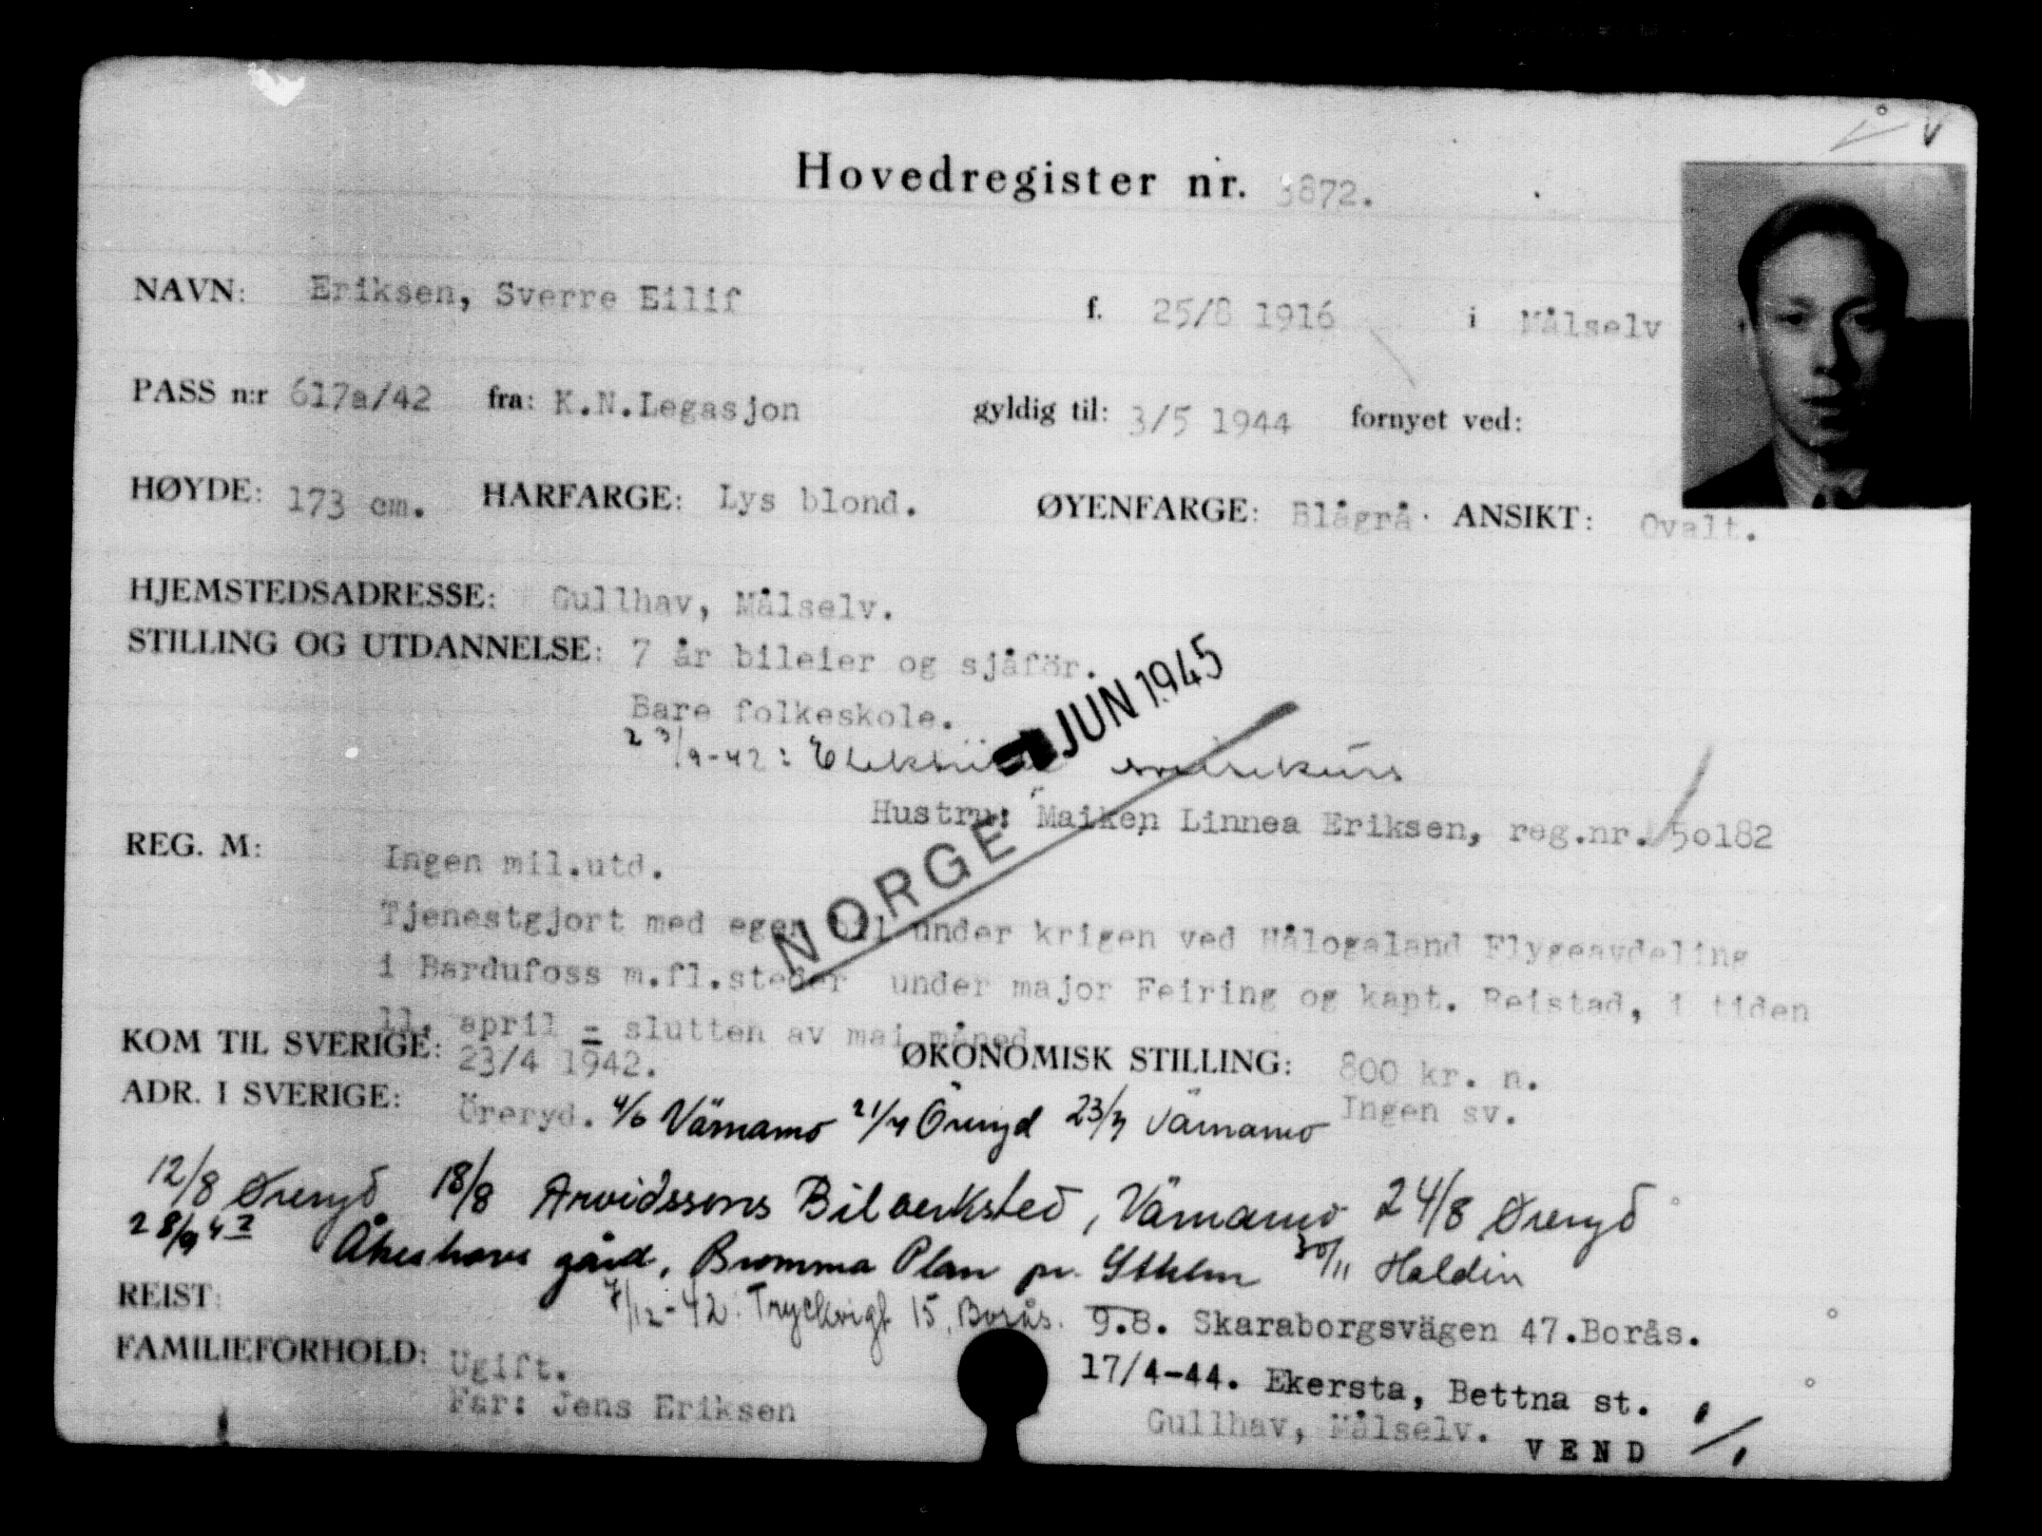 Hovedregister nr. 3872.
NAVN: Eriksen, Sverre Eilif f. 25/8 1916 i Målselv
PASS n:r 617a/42 fra: K.N.Legasjon gyldig til: 3/5 1944 fornyet ved:
HØYDE: 173 cm. HÅRFARGE: Lys blond. ØYENFARGE: Blågrå. ANSIKT: Ovalt.
HJEMSTEDSADRESSE: Gullhav, Målselv.
STILLING OG UTDANNELSE: 7 år bileier og sjåför.
JUN 1945
Bare folkeskole.
23/9-42:
Hustru: Maiken Linnea Eriksen, reg.nr. 50182
REG. M: Ingen mil.utd.
NORGE
Tjenestgjort med egen bil under krigen ved Hålogaland Flygeavdeling
i Bardufoss m.fl.steder under major Feiring og kapt. Reistad, i tiden
11. april = slutten av mai måned.
KOM TIL SVERIGE: 23/4 1942. ØKONOMISK STILLING: 800 kr. n.
Ingen sv.
ADR. I SVERIGE: Öreryd. 4/6 Värnamo 21/7 Öreryd 23/7 Värnamo
12/8 Øreryd 18/8 Arvidssons Bilverksted, Värnamo 24/8 Øreryd
28/9 42 Åkeshovs gård, Bromma Plan pr. Sthlm 30/11 Haldin
REIST: 7/12-42: 15, Borås. 9.8. Skaraborgsvägen 47.Borås.
FAMILIEFORHOLD: Ugift. 17/4-44. Ekersta, Bettna st.
Far: Jens Eriksen Gullhav, Målselv.
VEND